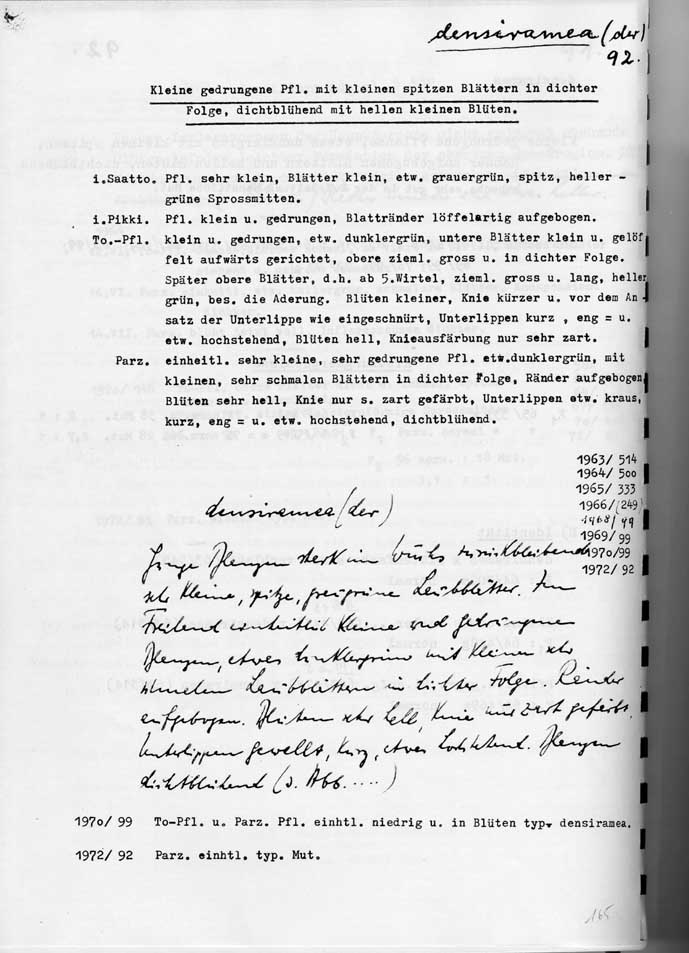 densiramea (der)
92.
Kleine gedrungene Pfl. mit kleinen spitzen Blättern in dichter
Folge, dichtblühend mit hellen kleinen Blüten.
i.Saatto. Pfl. sehr klein, Blätter klein, etw. grauergrün, spitz, heller -
grüne Sprossmitten.
i.Pikki. Pfl. klein u. gedrungen, Blattränder löffelartig aufgebogen.
To.-Pfl. klein u. gedrungen, etw. dunklergrün, untere Blätter klein u. gelöf
felt aufwärts gerichtet, obere zieml. gross u. in dichter Folge.
Später obere Blätter, d.h. ab 5.Wirtel, zieml. gross u. lang, heller
grün, bes. die Aderung. Blüten kleiner, Knie kürzer u. vor dem An -
satz der Unterlippe wie eingeschnürt, Unterlippen kurz , eng = u.
etw. hochstehend, Blüten hell, Knieausfärbung nur sehr zart.
Parz. einheitl. sehr kleine, sehr gedrungene Pfl. etw.dunklergrün, mit
kleinen, sehr schmalen Blättern in dichter Folge, Ränder aufgebogen
Blüten sehr hell, Knie nur s. zart gefärbt, Unterlippen etw. kraus,
kurz, eng = u. etw. hochstehend, dichtblühend.
1963/ 514
1964/ 500
1965/ 333
1966/(249)
1968/ 99
1969/ 99
1970/99
1972/ 92
densiramea (der)
Junge Pflanzen stark im Wuchs zurückbleibend
sehr kleine, spitze, graugrüne Laubblätter. Im
Freiland einheitlich kleine und gedrungene
Pflanzen, etwas dunklergrün mit kleinen sehr
schmalen Laubblättern in dichter Folge. Ränder
aufgebogen. Blüten sehr hell, Knie nur zart gefärbt,
Unterlippen gewellt, kurz, etwas hochstehend. Pflanzen
dichtblühend (s. Abb. ....)
1970/ 99 To-Pfl. u. Parz. Pfl. einhtl. niedrig u. in Blüten typ. densiramea.
1972/ 92 Parz. einhtl. typ. Mut.
165